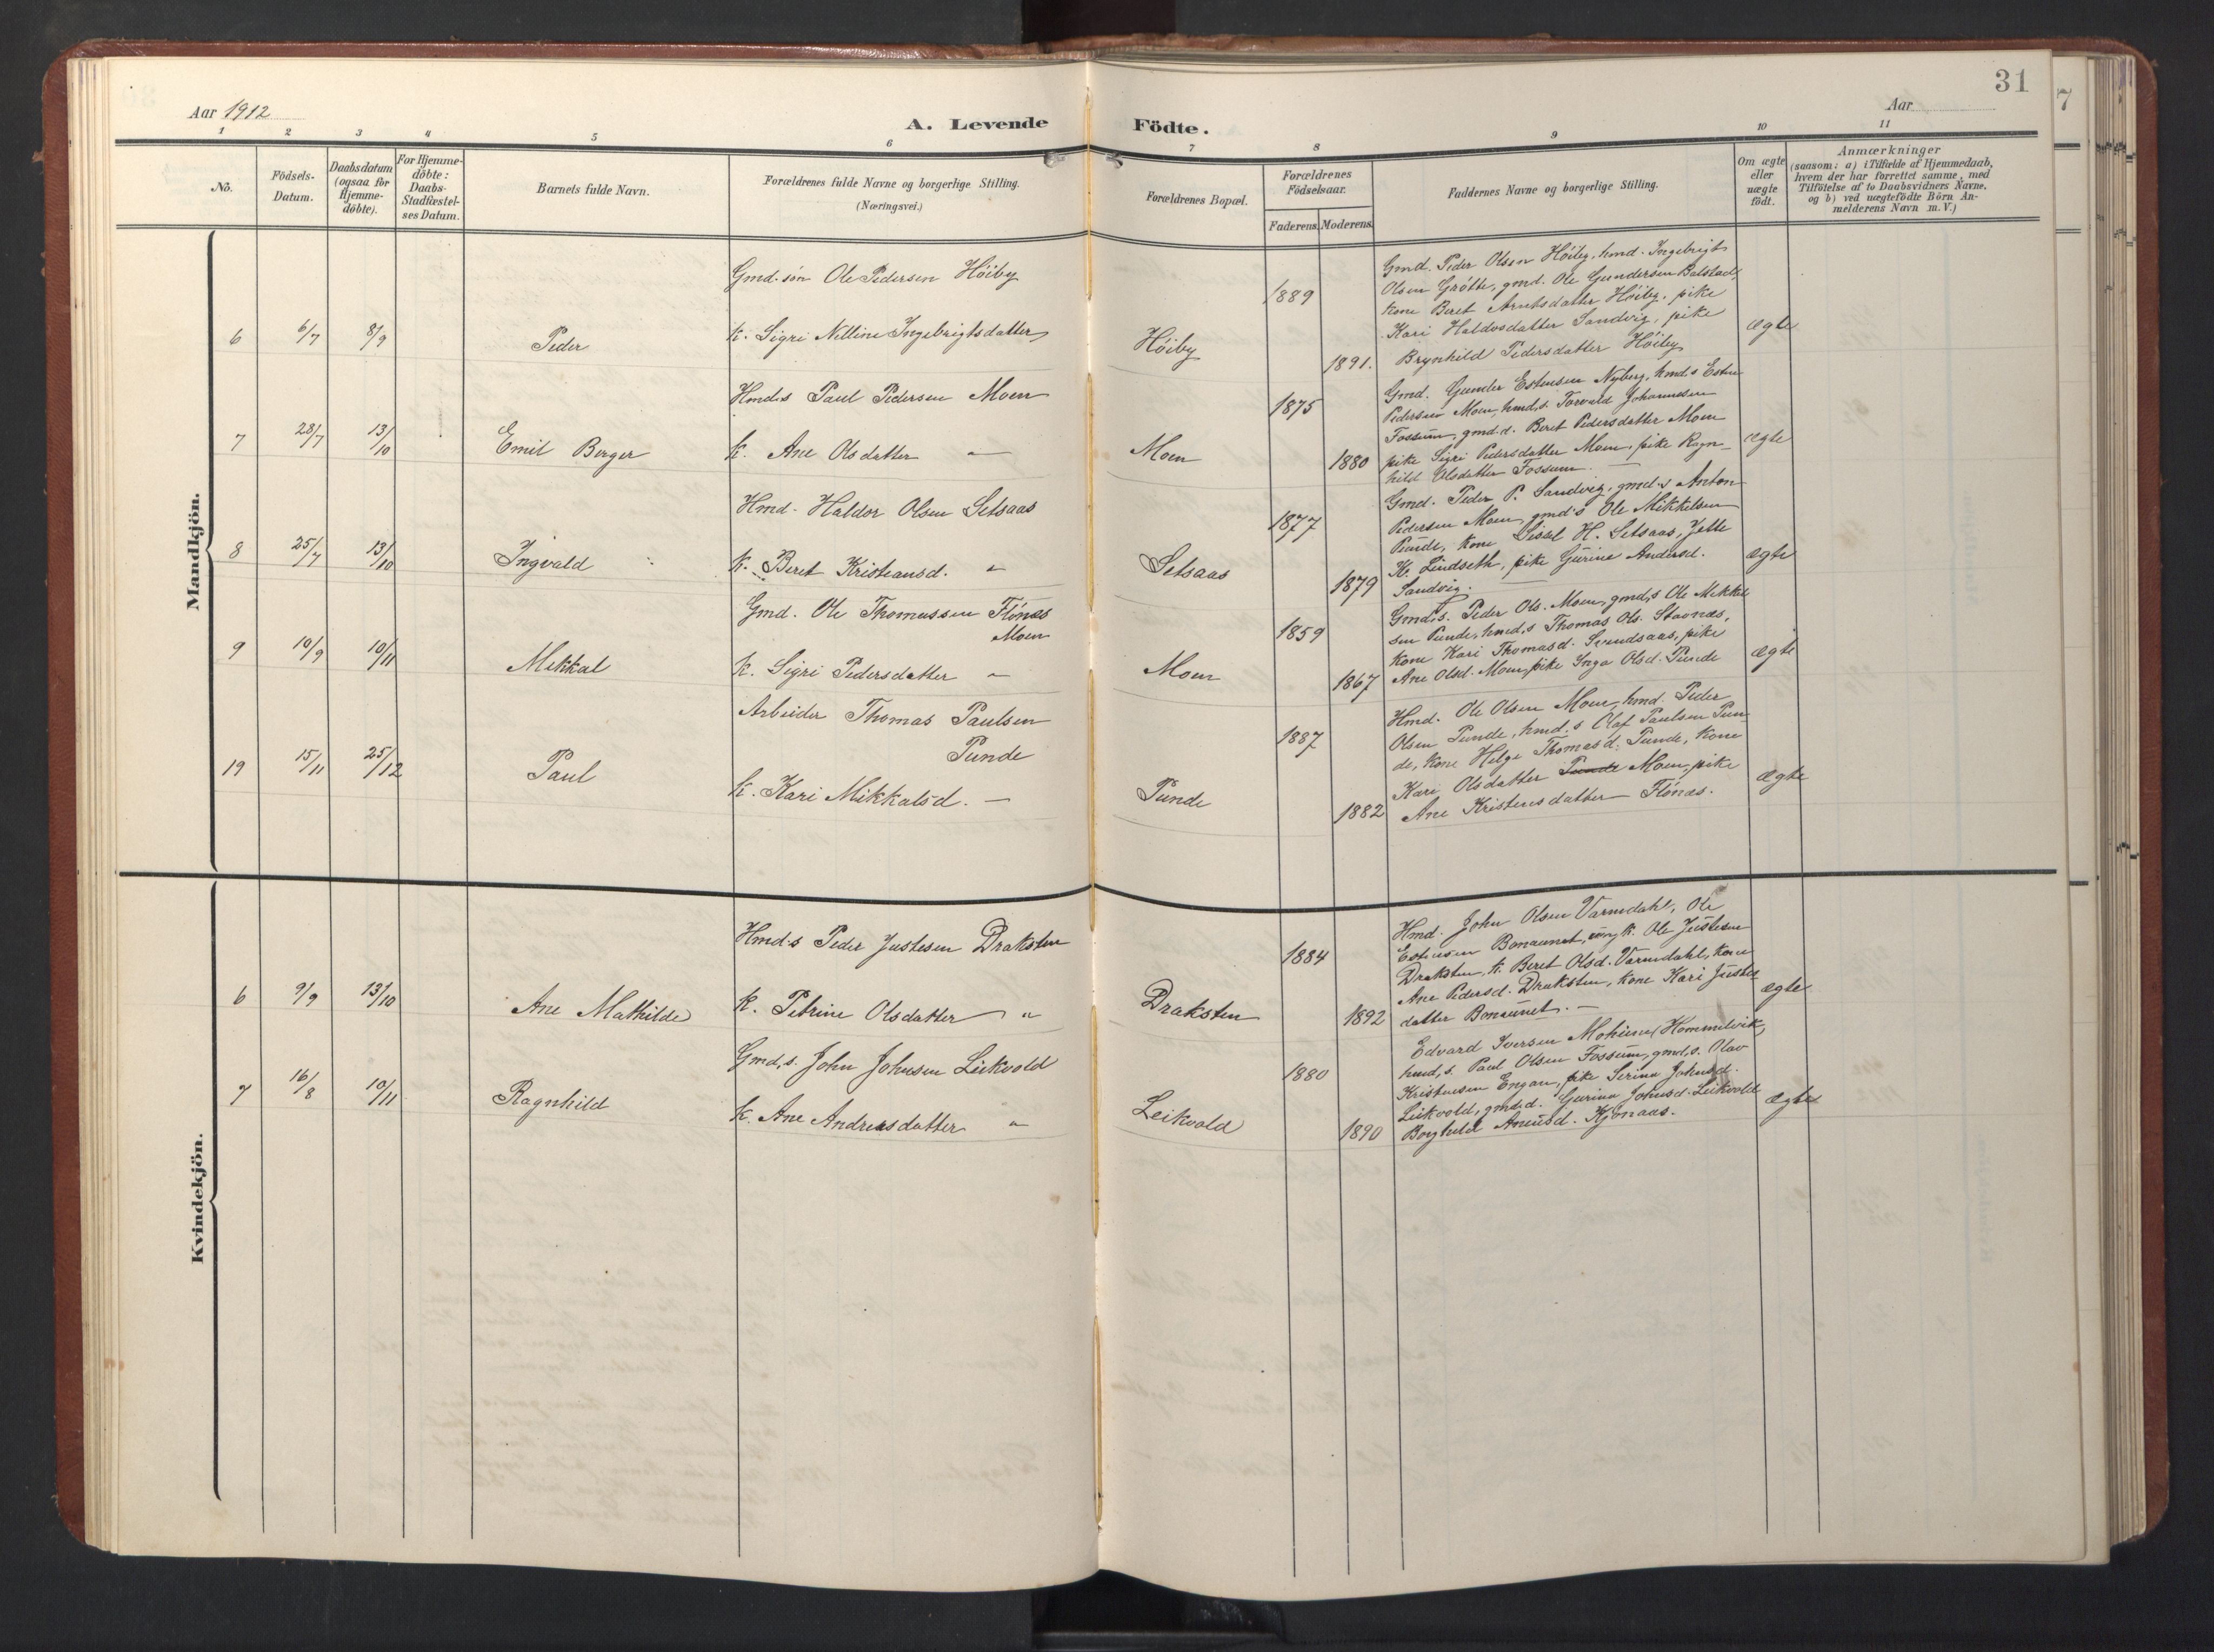 31
7
Aar 1912
A. Levende Födte.
Aar
1 2 3 4 5 6 7 8 9 10 11
No.
Födsels-
Datum.
Daabsdatum
(ogsaa for
Hjemme-
döbte).
For Hjemme-
döbte:
Daabs-
Stadfæstel-
ses Datum.
Barnets fulde Navn.
Forældrenes fulde Navne og borgerlige Stilling.
(Næringsvei.)
Forældrenes Bopæl.
Forældrenes
Födselsaar.
Faderens. Moderens.
Faddernes Navne og borgerlige Stilling.
Om ægte
eller
uægte
födt.
Anmærkninger
(saasom: a) i Tilfælde af Hjemmedaab,
hvem der har forrettet samme, med
Tilföielse af to Daabsvidners Navne,
og b) ved uægtefödte Börn An-
melderens Navn m. V.)
Mandkjön.
6 6/7 8/9 Peder
Gmd. sön Ole Pedersen Höiby
k. Sigri Nelline Ingebrigtsdatter
Höiby
1889
1891.
Gmd. Peder Olsen Höiby, hmd. Ingebrigt
Olsen Grötte, gmd. Ole Gundersen Balstad,
kone Beret Arntsdatter Höiby, pike
Kari Haldosdatter Sandvig, pike
Brynhild Pedersdatter Höiby
ægte
7 28/7 13/10 Emil Berger
Hmd.s Paul Pedersen Moen
k. Ane Olsdatter "
Moen
1875
1880
Gmd. Gunder Estensen Nyberg, hmd.s Esten
Pedersen Moen, hmd.s. Torvald Johannesen
Fossum, gmd.d. Beret Pedersdatter Moen
pike Sigri Pedersdatter Moen, pike Ragn-
hild Olsdatter Fossum.
ægte
8 25/7 13/10 Ingvald
Hmd. Haldor Olsen Setsaas
k. Beret Kristiansd. "
Setsaas
1877
1879
Gmd. Peder P. Sandvig, gmd.s Anton
Pedersen Moen, gmd's Ole Mikkelsen
Punde, kone Sissel H. Setsaas, Jette
K. Lindseth, pike Gurine Andersd.
Sandvig.
ægte
9 10/9 10/11 Mikkal
Gmd. Ole Thomassen Flönæs
Moen
k. Sigri Pedersdatter "
Moen
1859
1867
Gmd.s. Peder Ols. Moen, gmd.s Ole Mikkel
sen Punde, hmd.s Thomas Ols. Stavnæs,
kone Kari Thomasd. Svendsaas, pike
Ane Olsd. Moen, pike Inga Olsd. Punde
ægte
19 15/11 25/12 Paul
Arbeider Thomas Paulsen
Punde
k. Kari Mikkalsd. "
Punde
1887
1882
Hmd. Ole Olsen Moen, hmd. Peder
Olsen Punde, hmd.s Olaf Paulsen Pun-
de, kone Helge Thomasd. Punde, kone
Kari Olsdatter Punde Moen, pike
Ane Kristensdatter Flönæs.
ægte
Kvindekjön.
6 9/9 13/10 Ane Mathilde
Hmd.s Peder Justesen Draksten
k. Petrine Olsdatter "
Draksten
1884
1892
Hmd. John Olsen Varmdahl, Ole
Estensen Bonaunet, ungk. Ole Justesen
Draksten, k. Beret Olsd. Varmdahl, kone
Ane Pedersd. Draksten, kone Kari Justes-
datter Bonaunet.
ægte
7 16/8 10/11 Ragnhild
Gmd.s. John Johnsen Leikvold
k. Ane Andreasdatter "
Leikvold
1880
1890
Edvard Iversen Hommelvik,
hmd.s. Paul Olsen Fossum, gmd.s. Olav
Kristensen Engan, pike Serina Johnsd.
Leikvold, gmd.d. Gurina Johnsd. Leikvold
Borghild Kjönaas.
ægte